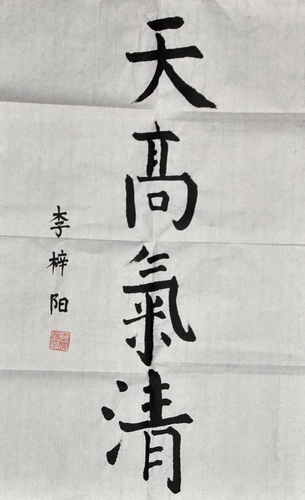 天髙氣清
李梓阳